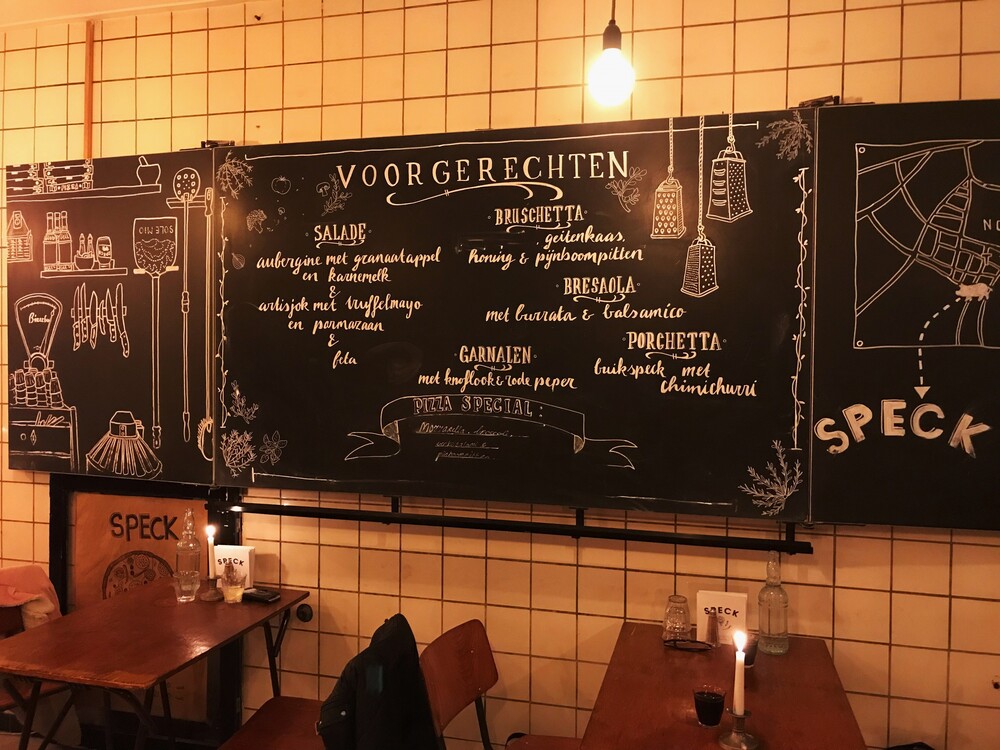 VOORGERECHTEN
SALADE
aubergine met granaatappel
en karnemelk
&
artisjok met truffelmayo
en parmazaan
&
feta
BRUSCHETTA
geitenkaas,
honing & pijnboompitten
BRESAOLA
met burrata & balsamico
PORCHETTA
buikspeck met
chimichurri
GARNALEN
met knoflook & rode peper
PIZZA SPECIAL:
Mozzarella
SOLE MIO
SPECK
SPECK
SPECK
SPECK